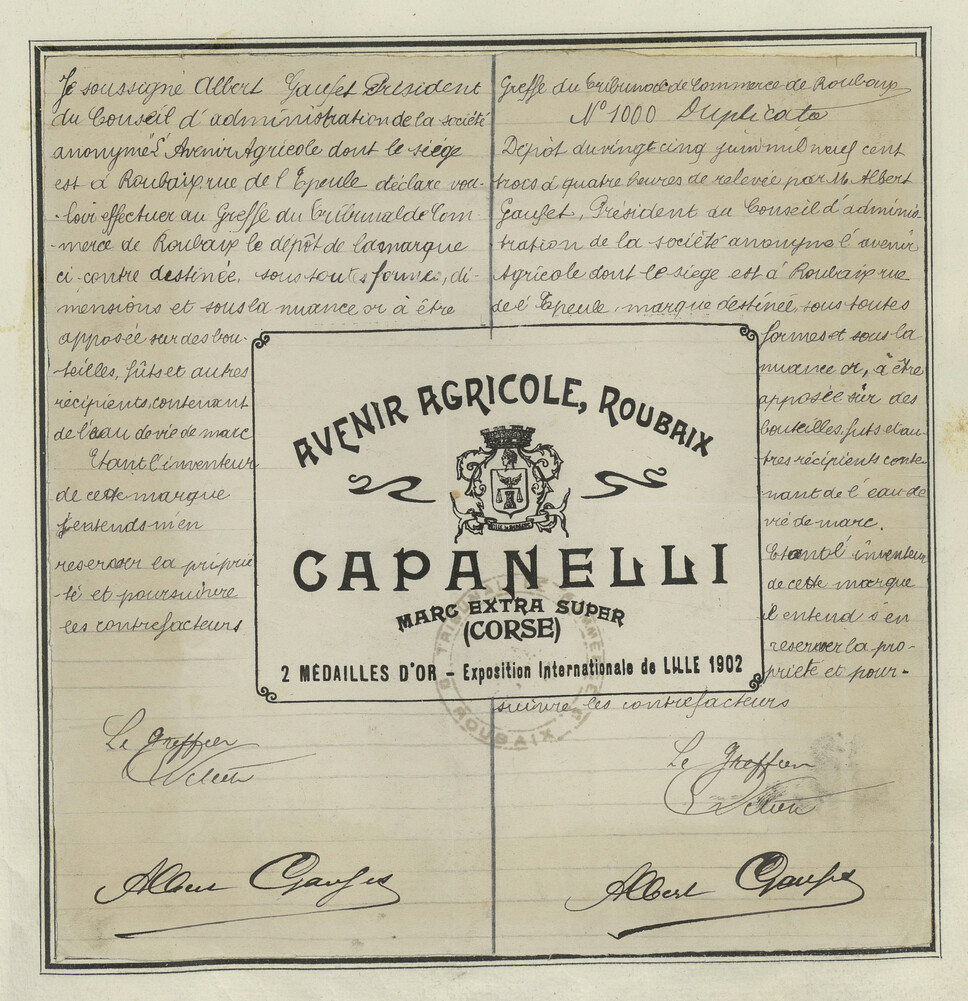 Je soussigné Albert Gaufet Président
du Conseil d'administration de la société
anonyme L'Avenir Agricole dont le siège
est à Roubaix rue de l'Epeule déclare vou-
-loir effectuer au Greffe du Tribunal de Com-
-merce de Roubaix le dépôt de la marque
ci-contre destinée, sous toutes formes, di-
mensions et sous la nuance or à être
apposée sur des bou-
-teilles, fûts et autres
récipients, contenant
de l'eau de vie de marc
Etant l'inventeur
de cette marque
j'entends m'en
reserver la proprié
-té et poursuivre
les contrefacteurs
Le Greffier
Albert
Greffe du Tribunal de Commerce de Roubaix
N° 1000 Duplicata
Dépôt du vingt cinq juin mil neuf cent
trois à quatre heures de relevée par M. Albert
Gaufet, Président du Conseil d'adminis-
tration de la société anonyme l'avenir
Agricole dont le siège est à Roubaix rue
de l'Epeule, marque destinée, sous toutes
formes et sous la
nuance or, à être
apposée sur des
bouteilles, futs et au-
-tres récipients conte-
-nant de l'eau de
vie de marc.
Etant l'inventeur
de cette marque
il entend s'en
reserver la pro-
priété et pour-
suivre les contrefacteurs
Le Greffier
Albert
AVENIR AGRICOLE, ROUBAIX
CAPANELLI
MARC EXTRA SUPER
(CORSE)
2 MÉDAILLES D'OR – Exposition Internationale de LILLE 1902
TRIBUNAL DE COMMERCE
ROUBAIX